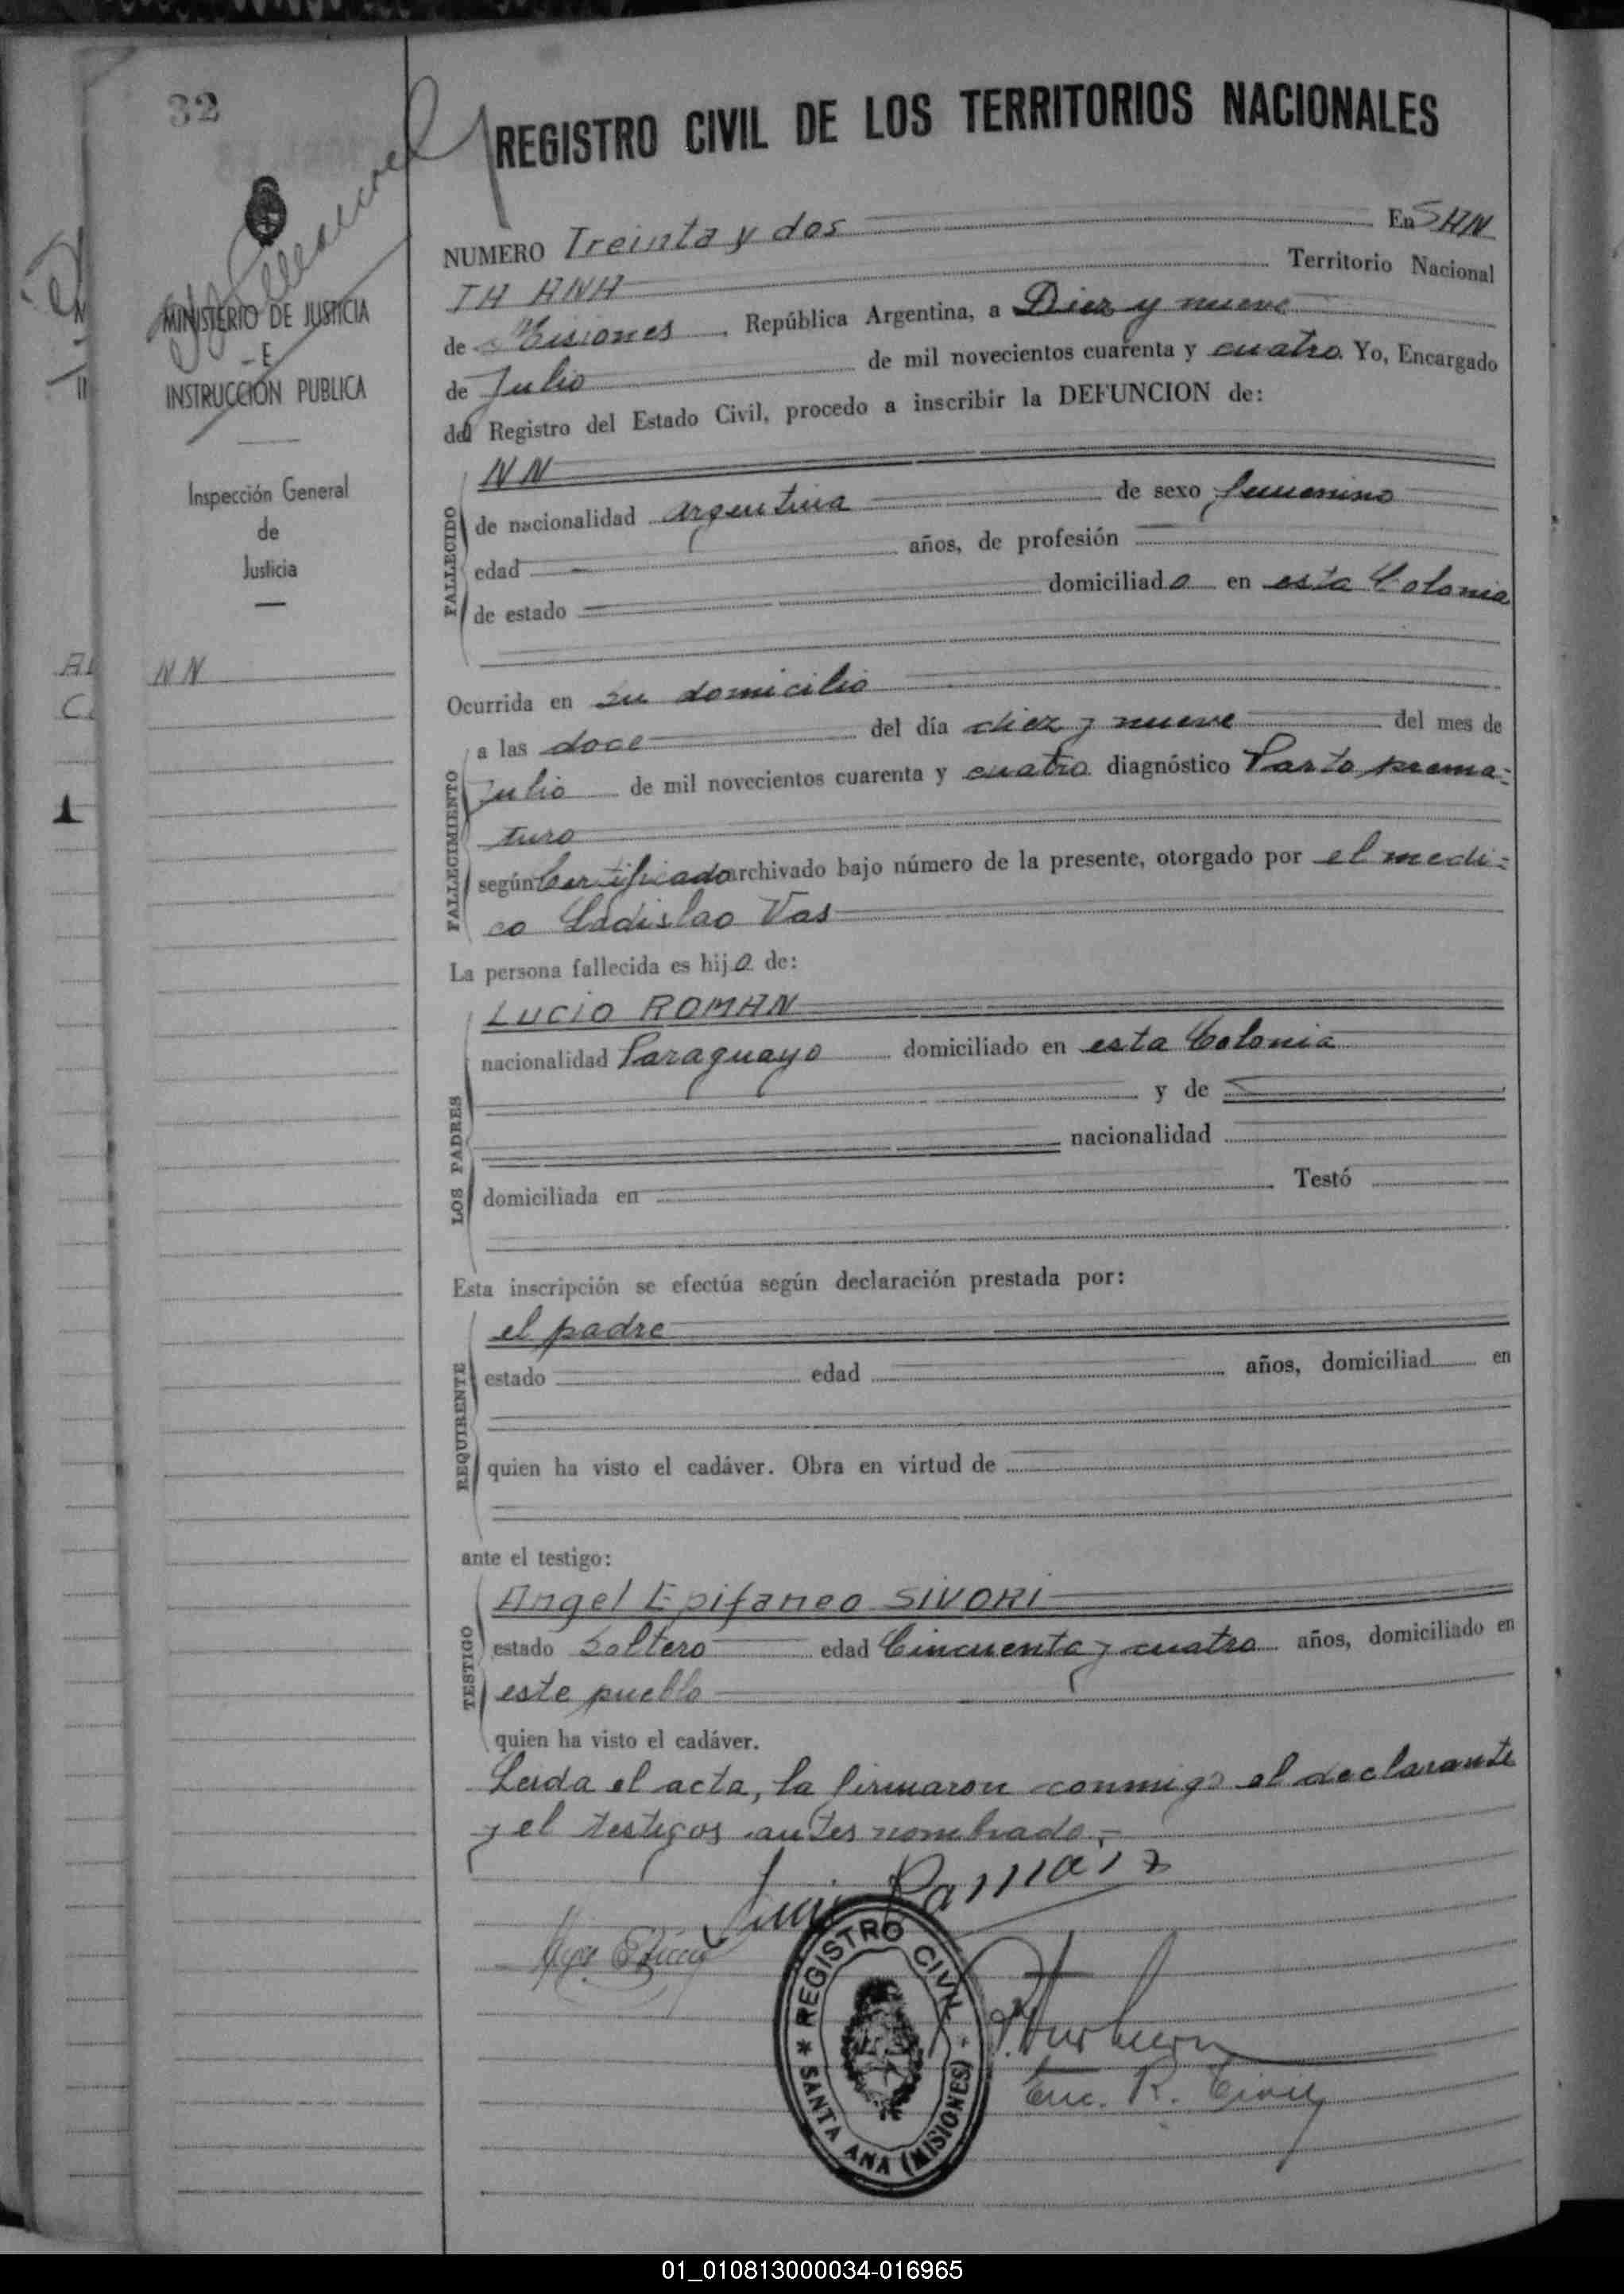 32
MINISTERIO DE JUSTICIA
E
INSTRUCCIÓN PUBLICA
Inspección General
de
Justicia
NN
1
REGISTRO CIVIL DE LOS TERRITORIOS NACIONALES
NUMERO Treinta y dos En SAN
TA ANA Territorio Nacional
de Misiones, República Argentina, a Diez y nueve
de Julio de mil novecientos cuarenta y cuatro. Yo, Encargado
del Registro del Estado Civil, procedo a inscribir la DEFUNCION de:
FALLECIDO
NN
de nacionalidad argentina de sexo femenino
edad años, de profesión
de estado domiciliada en esta Colonia
Ocurrida en su domicilio
FALLECIMIENTO
a las doce del día diez y nueve del mes de
Julio de mil novecientos cuarenta y cuatro diagnóstico Parto prema-
turo
según Certificado archivado bajo número de la presente, otorgado por el medi-
co Ladislao Vas
La persona fallecida es hija de:
LOS PADRES
LUCIO ROMAN
nacionalidad Paraguayo domiciliado en esta Colonia
y de
nacionalidad
domiciliada en Testó
Esta inscripción se efectúa según declaración prestada por:
REQUIRENTE
el padre
estado edad años, domiciliad en
quien ha visto el cadáver. Obra en virtud de
ante el testigo:
TESTIGO
Angel Epifaneo SIVORI
estado Soltero edad Cincuenta y cuatro años, domiciliado en
este pueblo
quien ha visto el cadáver.
Leida el acta, la firmaron conmigo el declarante
y el testigos antes nombrado.-
REGISTRO CIVIL
* SANTA ANA (MISIONES) *
Enc. R. Civil
01_010813000034-016965